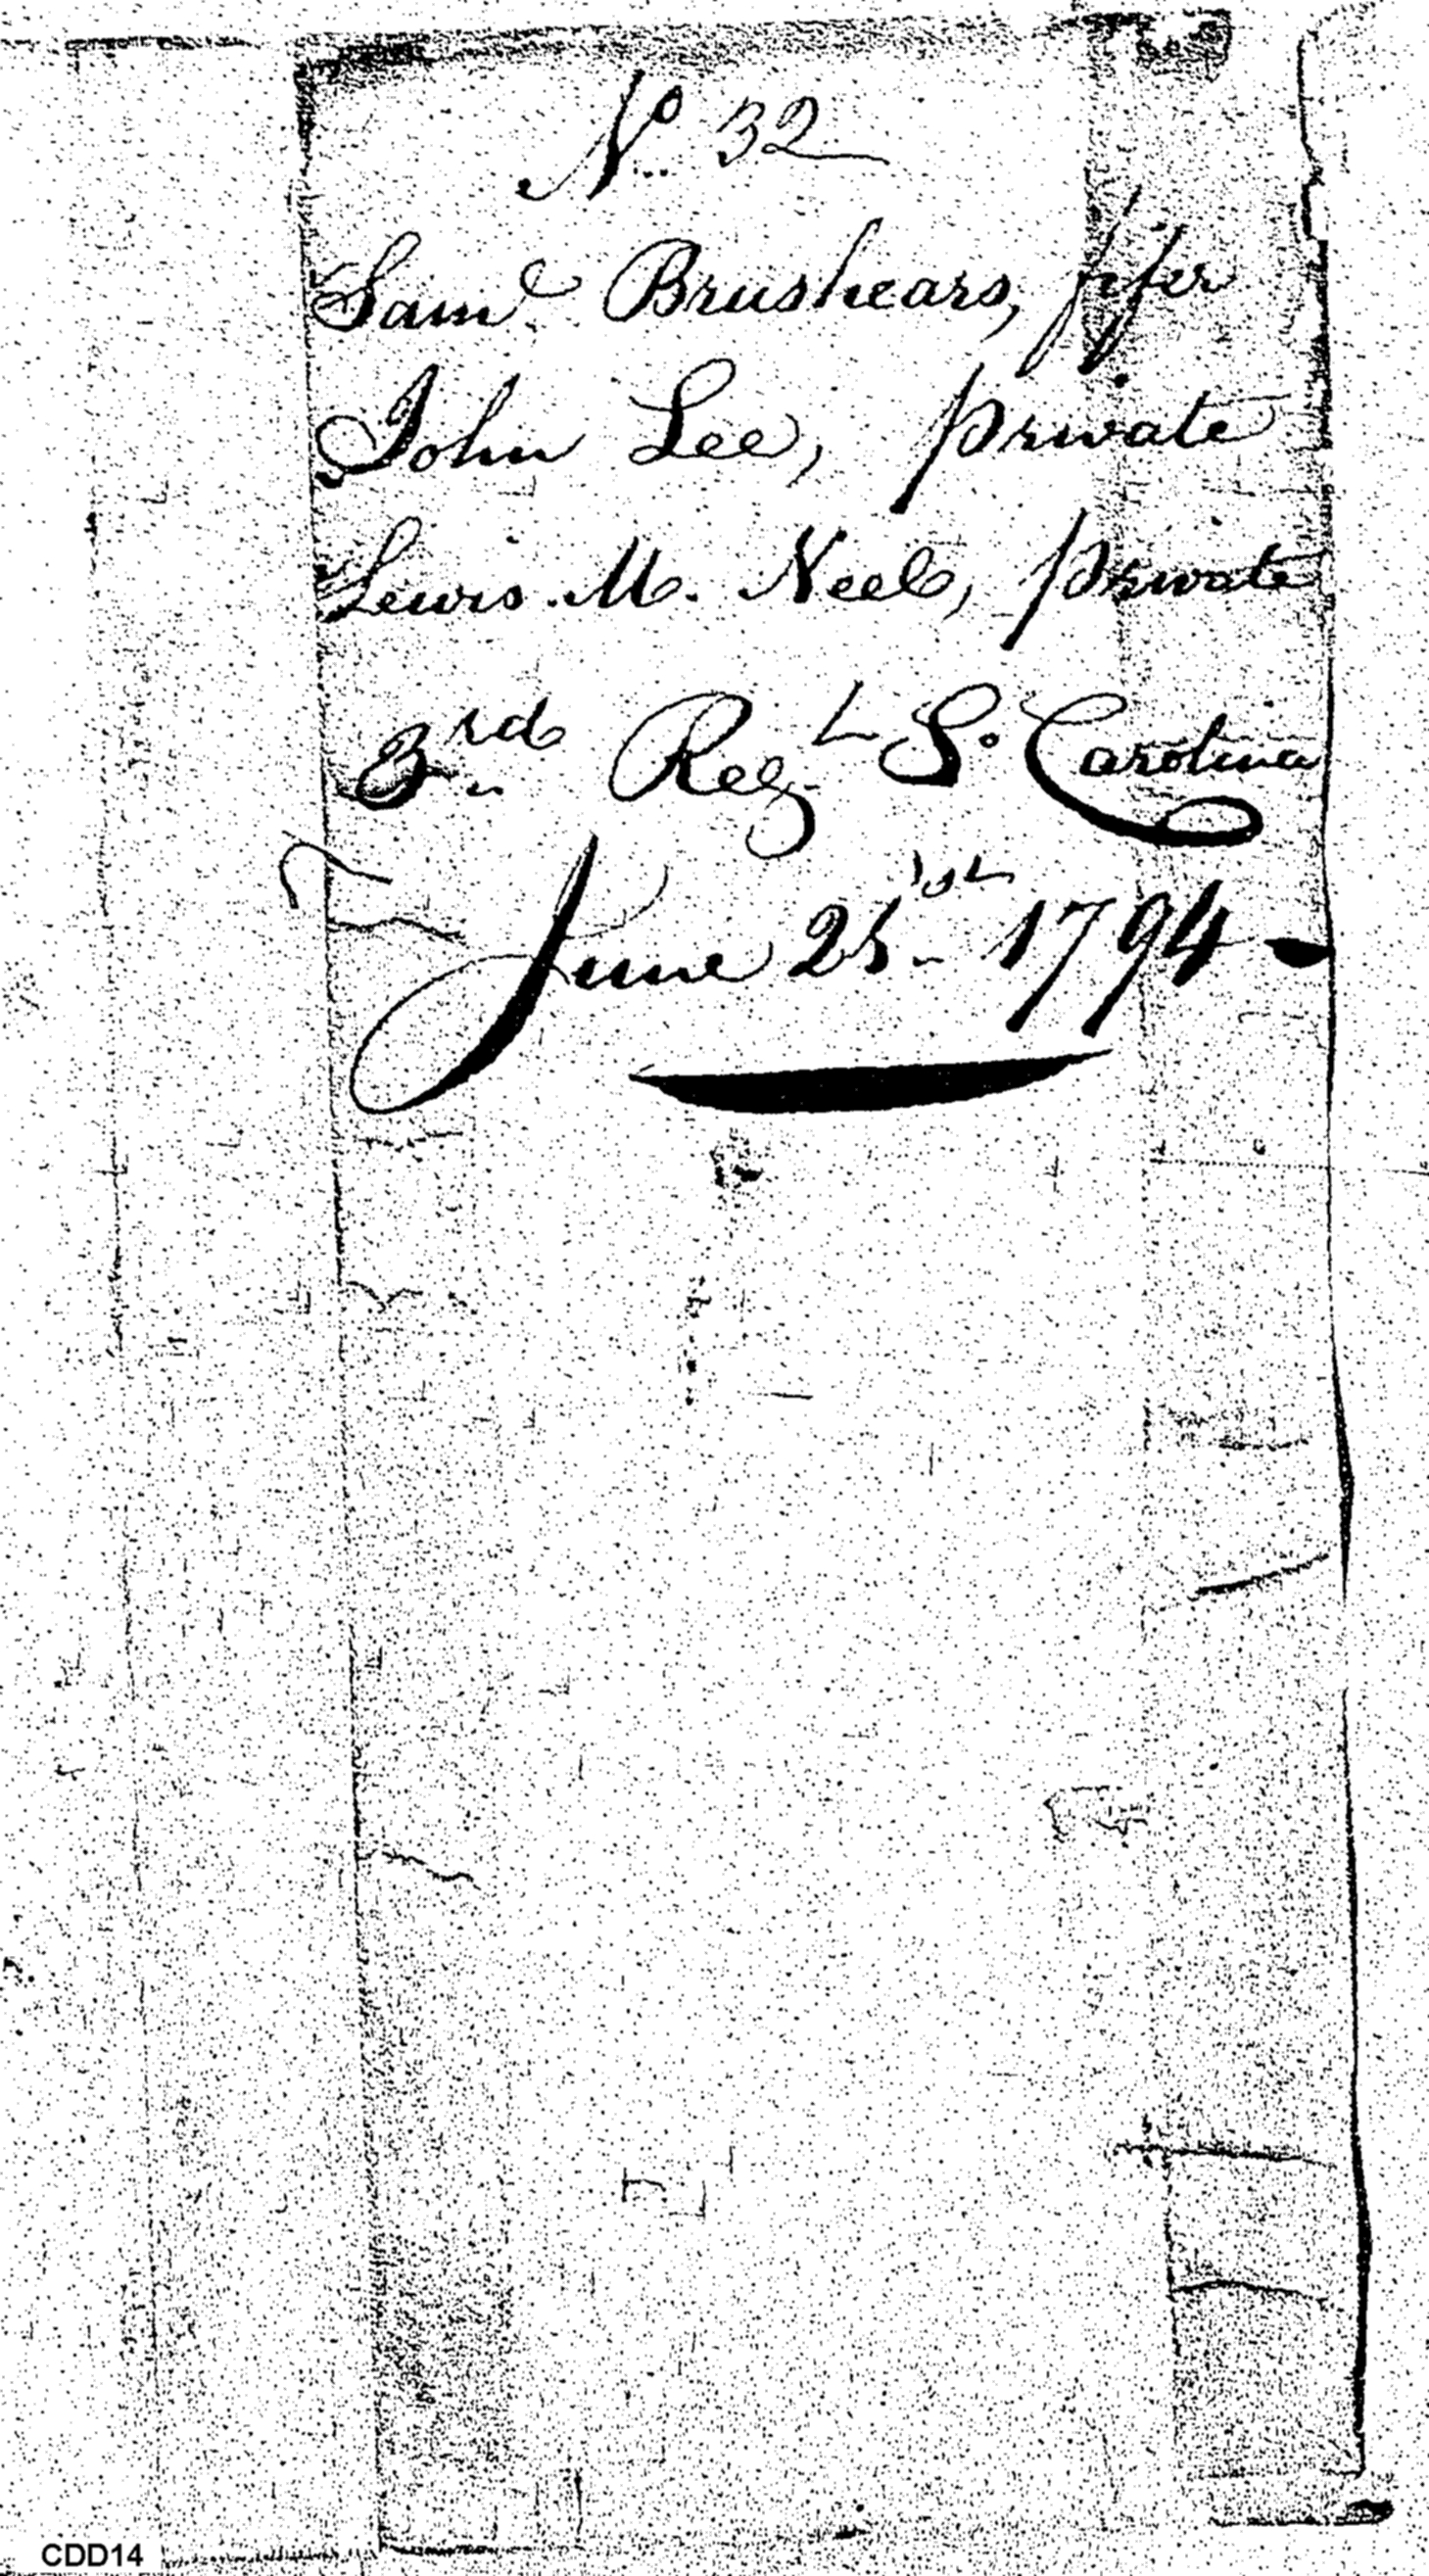 No 32
Saml Brushears, fifer
John Lee, private
Lewis M. Neel, private
3rd Regt So. Carolina
June 25th 1794
CDD14